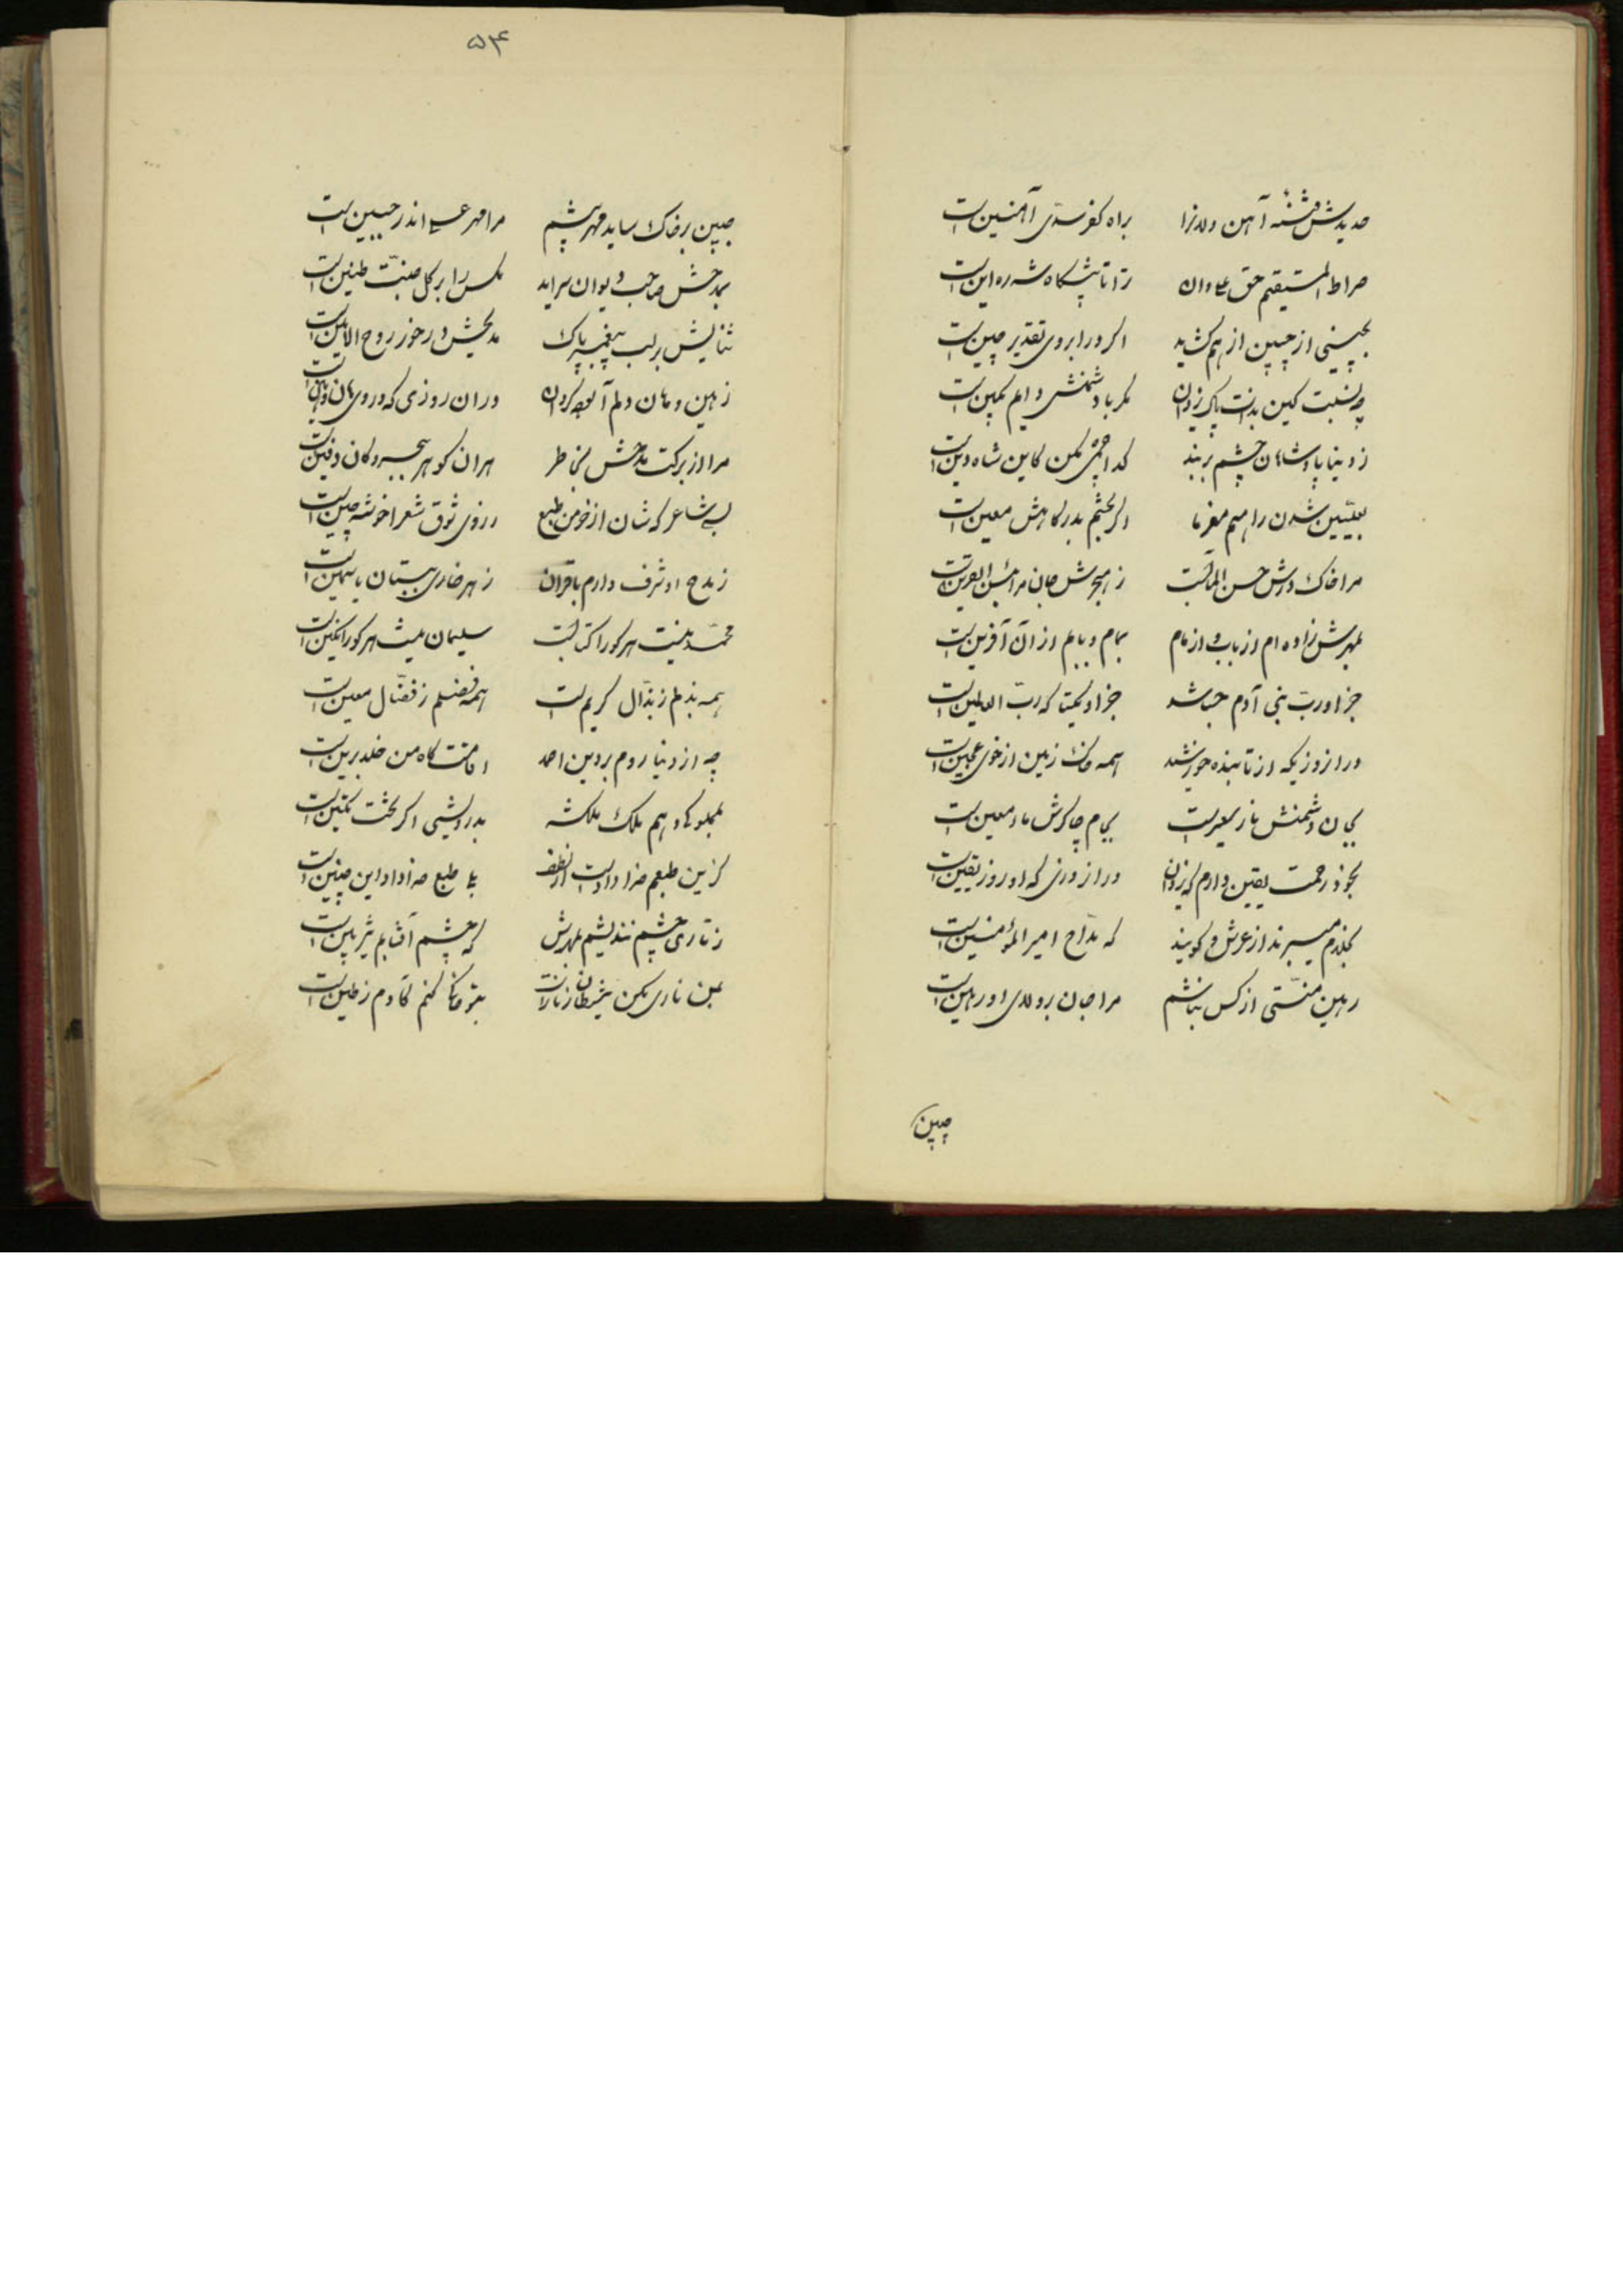 حدیدش فتنهٔ آهن دلانرا براه کفر سدّی آهنین است
صراط المستقیم حق علی دان ترا تا پیشگاه شه ره این است
به بینی از چین از هم گشاید اگر در ابروی تقدیر چین است
چه نسبت کین بذات پاک یزدان مگر با دشمنش دایم بکین است
ز دنیا پادشاهان چشم بربند کدا چشمی مکن کاین شاه دین است
بعلیین شدن را هم
مرا خاک درش حسن المآبست ز هجرش جان مرا بئس القرین است
بمهرش زاده‌ام از باب و از مام بمام و بابم از آن آفرین است
جز او ربّ بنی آدم نباشد جز او یکتا که ربّ العالمین است
در انروزیکه از تابنده خورشید همه خاک زمین از خوی عجین است
بجان دشمنش نار سعیر است بجام چاکرش ماء معین است
بخود رحمت یقین دارم که یزدان در انروزی که او روز یقین است
بخلدم میبرند از عرش و گویند که مدّاح امیر المؤمنین است
رهین منّتی از کس نباشم مرا جان بر ولای او رهین است
چین
۵۴
جبین بر خاک ساید مهر پیشم مرا مهر علی اندر جبین است
بمدحش صاحب دیوان سراید مگس را بر گل جنّت طنین است
ثنایش بر لب پیغمبر پاک مدیحش در خور روح الامین است
زمین و مان دلم در ان روزی که
مرا از برکت مدحش بخاطر هر ان گوهر ببحر و کان دفین است
بسی شاعر که شان از خرمن طبع ز روی ذوق شعرا خوشه چین است
ز مدح او شرف دارم باقران ز هر خاری ببستان یاسمین است
محمّد نیست هر کو را کتابست سلیمان نیست هر کو را نگین است
همه بذلم ز بذّال کریم است همه فضلم ز فضّال معین است
چه از دنیا روم بر دین احمد اقامتگاه من خلد برین است
بمملوکی دهم ملک ملکشه بدرویشی اگر تخت تکین است
گزین طبعم خدا داد است از لطف بلی طبع خدا داد این چنین است
ز تاری چشم نندیشم بمهرش که چشم آفتابم پیش بین است
بمن ناری مکن شیطان ز نار است بتو خاکی کنم کادم ز طین است